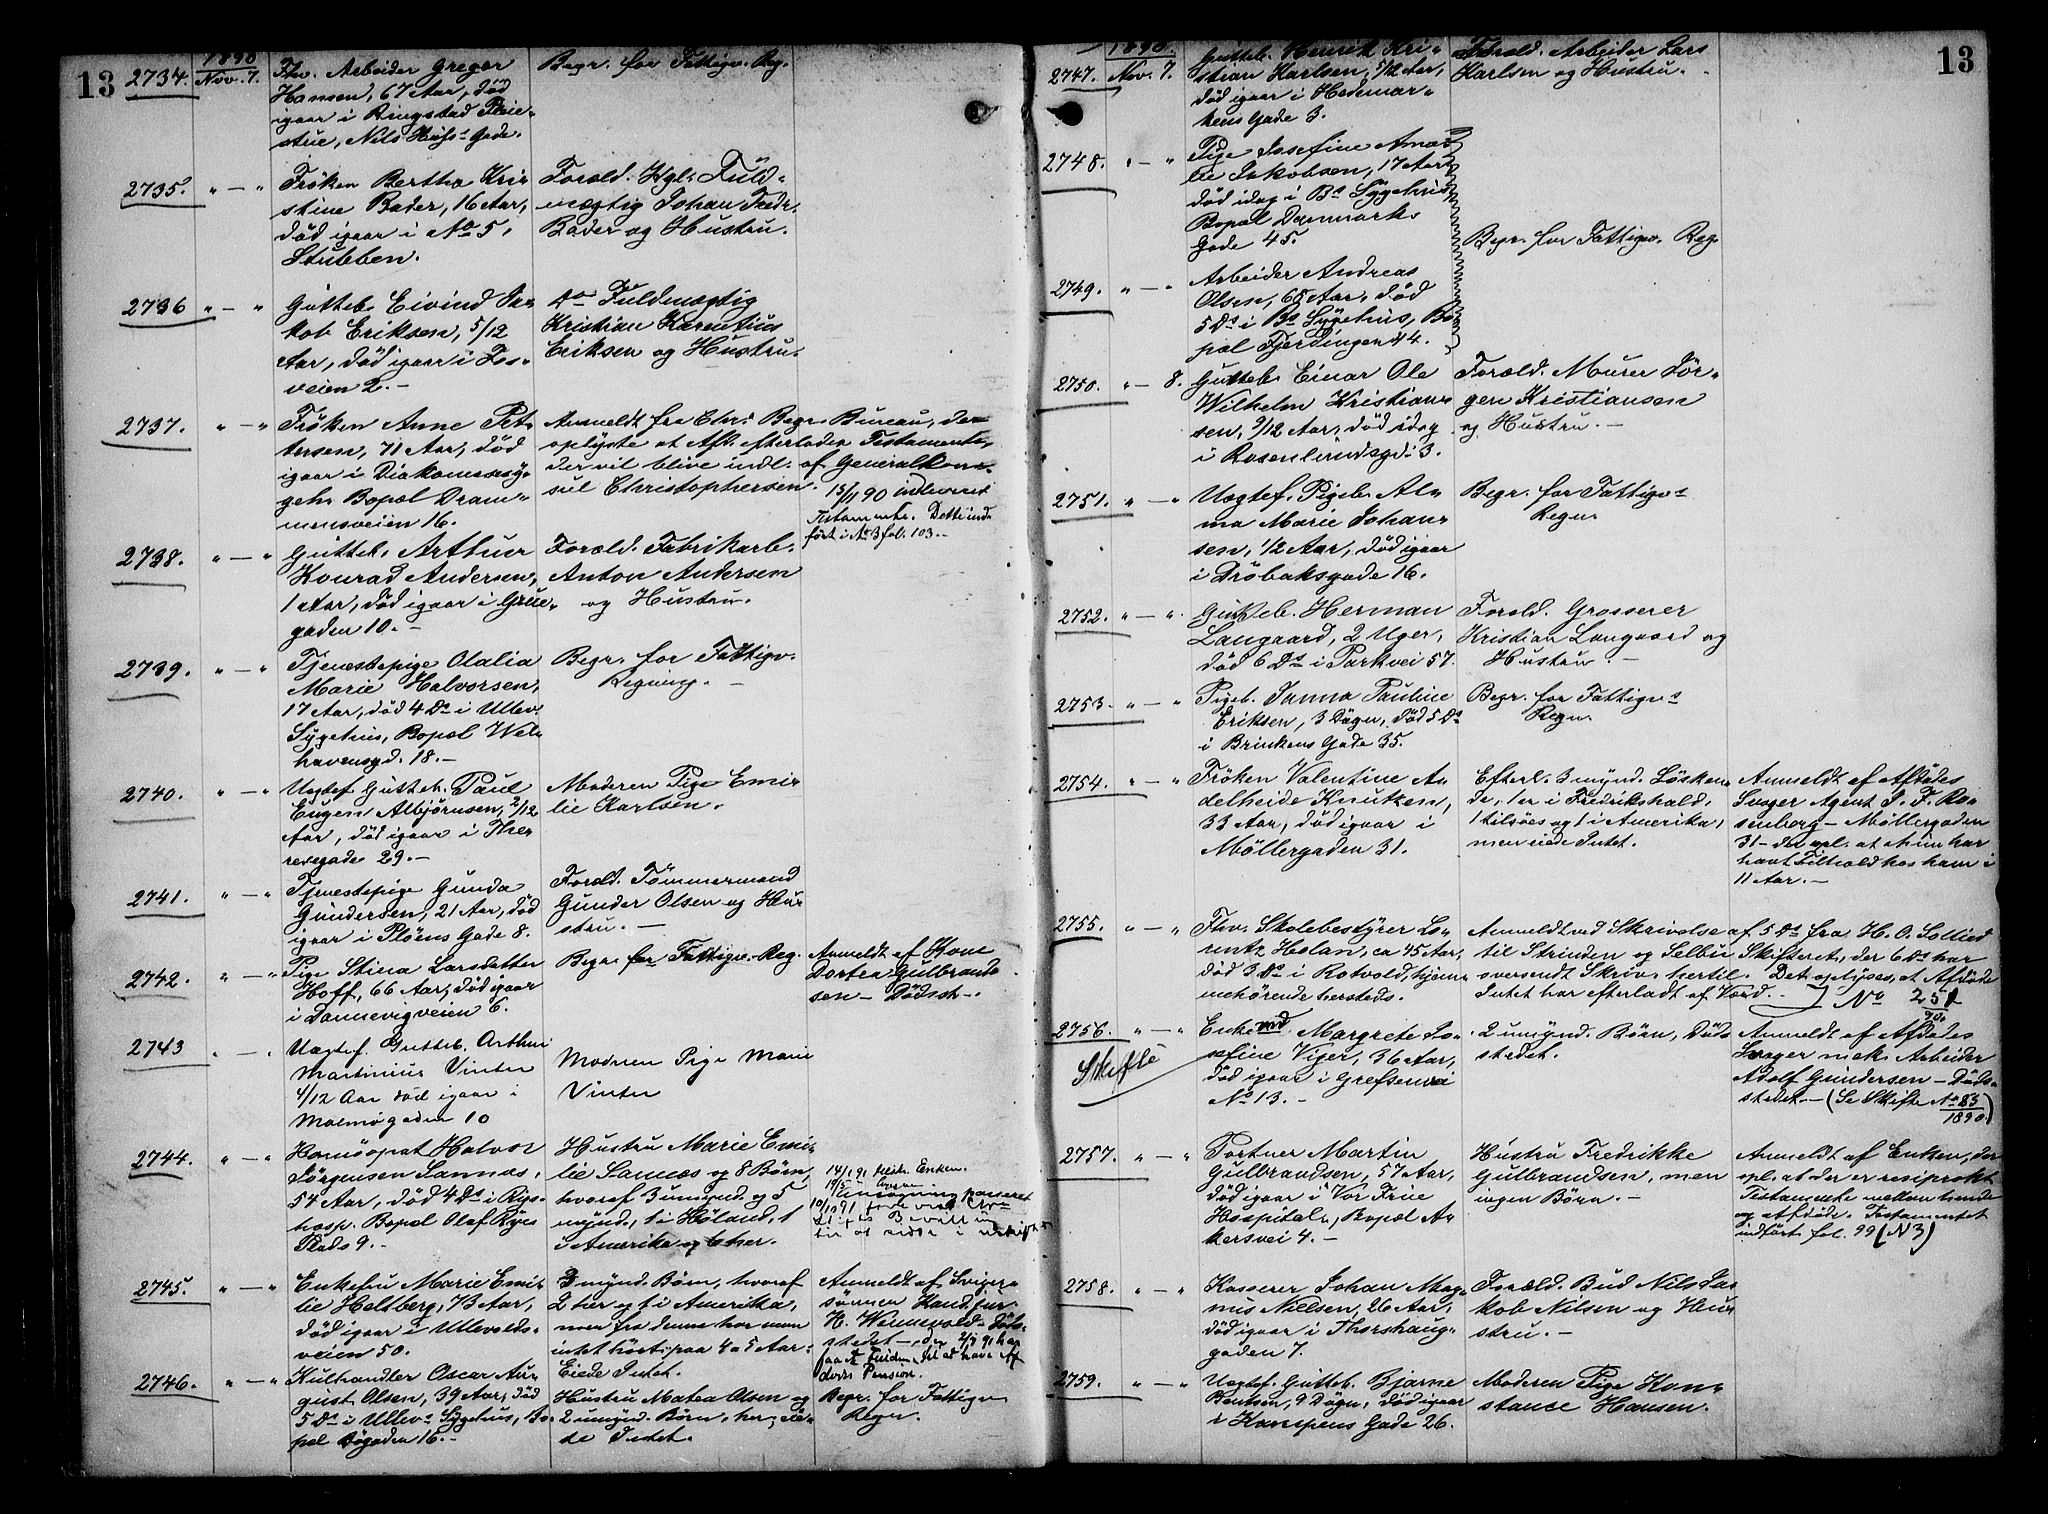 13
1890
2734. Nov. 7. Fhv. Arbeider Gregor
Hansen, 67 Aar, død
igaar i Ringstad Pleie-
stue, Nils Huus's Gade.
Begr. for Fattigv. Reg.
2735. " — " Frøken Bertha Kri-
stine Bader, 16 Aar,
død igaar i No 5,
Stubben.
Foræld. Kgl. Fuld-
mægtig Johan Fredr.
Bader og Hustru.
2736 " — " Gutteb. Eivind Ja-
kob Eriksen, 5/12
Aar, død igaar i
veien 2. —
Do Fuldmægtig
Kristian Karentius
Eriksen og Hustru.
2737. " — " Frøken Anne Pet-
tersen, 71 Aar, død
igaar i Diakonissesy-
geh. Bopæl Dram-
mensveien 16.
Anmeldt fra Chr. Begr. Bureau, der
oplyste at Afd. efterlader Testamente,
der vil blive indl. af Generalkon-
sul Christophersen.
13/11 90 indleveret
Testamente. Dette ind-
ført i No 3 fol. 103. —
2738. " — " Gutteb. Arthur
Konrad Andersen,
1 Aar, død igaar i Grue-
gaden 10. —
Foræld. Fabrikarb.
Anton Andersen
og Hustru.
2739. " — " Tjenestepige Olalia
Marie Halvorsen,
17 Aar, død 4 Ds i Ullev.
Sygehus, Bopæl Wel-
havensgd. 18. —
Begr. for Fattigv.
Regning. —
2740. " — " Uægtef. Gutteb. Paul
Eugen Albjørnsen, 2/12
Aar, død igaar i The-
resegade 29. —
Moderen Pige Emi-
lie Karlsen.
2741. " — " Tjenestepige Gunda
Gundersen, 21 Aar, død
igaar i Pløens Gade 8.
Foræld. Tømmermand
Gunder Olsen og Hu-
stru. —
2742. " — " Pige Stina Larsdatter
Hoff, 66 Aar, død igaar
i Dannevigveien 6.
Begr. for Fattigv. Reg.
Anmeldt af Kone
Dortea Gulbrand-
sen — Dødsst. —
2743 " — " Uægtef. Gutteb. Arthur
Martinius Vinter
4/12 Aar død igaar i
Malmøgaden 10
Moderen Pige Marie
Vinter
2744. " — " Homøopat Halvor
Jørgensen Sannæs,
54 Aar, død 4 Ds i Rigs-
hosp. Bopæl Olaf Ryes
Plads 9. —
Hustru Marie Emi-
lie Sannæs og 8 Børn,
hvoraf 3 umynd. og 5
mynd., 1 i Høland, 1
i Amerika og 6 her.
2745. " — " Enkefru Marie Emi-
lie Heltberg, 73 Aar,
død igaar i Ullevolds-
veien 50.
3 mynd. Børn, hvoraf
2 her og 1 i Amerika,
men fra denne har man
intet hørt paa 4 a 5 Aar.
Eiede Intet.
Anmeldt af Sviger-
sønnen Kand. jur.
H. Wennevold — Døds-
stedet —
2746. " — " Kulhandler Oscar Au-
gust Olsen, 39 Aar, død
5 Ds i Ullevs Sygehus, Bo-
pæl Bøgaden 16. —
Hustru Matea Olsen og
2 umynd. Børn, her, eie-
de Intet.
Begr. for Fattigv.
Regn.
13
1890.
2747. Nov. 7. Gutteb. Henrik Kri-
stian Karlsen, 5/12 Aar,
død igaar i Hedemar-
kens Gade 3.
Foræld. Arbeider Lars
Karlsen og Hustru.
2748. " — " Pige Josefine Ama-
lie Jakobsen, 17 Aar,
død idag i Bs Sygehus,
Bopæl Danmarks
Gade 45.
Begr. for Fattigv. Reg.
2749. " — " Arbeider Andreas
Olsen, 65 Aar, død
5 Ds i Bs Sygehus, Bo-
pæl Fjerdingen 44.
2750. " — 8. Gutteb. Einar Ole
Wilhelm Kristian-
sen, 9/12 Aar, død idag
i Rosenlundsgd. 3.
Foræld. Murer Jør-
gen Kristiansen
og Hustru. —
2751. " — " Uægtef. Pigeb. Al-
ma Marie Johan-
sen, 1/2 Aar, død igaar
i Drøbaksgade 16.
Begr. for Fattigvs
Regn.
2752. " — " Gutteb. Herman
Langaard, 2 Uger,
død 6 Ds i Parkvei 57.
Foræld. Grosserer
Kristian Langaard og
Hustru. —
2753. " — " Pigeb. Janna Pauline
Eriksen, 3 Døgn, død 5 Ds
i Brinkens Gade 35.
Begr. for Fattigvs
Regn.
2754. " — " Frøken Valentine A-
delheide Knutzen,
33 Aar, død igaar i
Møllergaden 31.
Efterl. 3 mynd. Sösken-
de, 1 er i Fredrikshald,
1 tilsøes og 1 i Amerika,
men eiede Intet.
Anmeldt af Afdødes
Svoger Agent S. F. Ro-
senberg — Møllergaden
31 — der opl. at hun har
havt Tilhold hos ham i
11 Aar. —
2755. " — " Fhv. Skolebestyrer Lo-
rentz Holan, ca 45 Aar,
død 3 Ds i Rotvold, hjem-
mehørende hersteds.
Anmeldt ved Skrivelse af 5 Ds fra H. O. Sollied
til Strinden og Selbu Skifteret, der 6 Ds har
oversendt Skriv. hertil. Det oplyses, at Afdøde
Intet har efterladt af Værd. — No 251/90.
2756. " — " Enkemd. Margrete Jo-
sefine Viger, 36 Aar,
død igaar i Grefsenvei
No 13. —
Skifte
2 umynd. Børn, Døds-
stedet.
Anmeldt af Afdødes
Svoger mek. Arbeider
Adolf Gundersen — Døds-
stedet. — (Se Skifte No 83/1890.)
2757. " — " Portner Martin
Gulbrandsen, 57 Aar,
død igaar i Vor Frue
Hospital, Bopæl A-
kersvei 4. —
Hustru Fredrikke
Gulbrandsen, men
ingen Børn. —
Anmeldt af Enken, der
opl. at der er resiprokt
Testamente mellem hende
og Afdøde. Testamentet
indført fol. 99 (N 3)
2758. " — " Kasserer Johan Mag-
nus Nielsen, 26 Aar,
død igaar i Thorshaug-
gaden 7.
Foræld. Bud Nils Ja-
kob Nilsen og Hu-
stru. —
2759. " — " Uægtef. Gutteb. Bjarne
Bentsen, 9 Døgn, død igaar
i Kampens Gade 26.
Moderen Pige Kon-
stance Hansen.